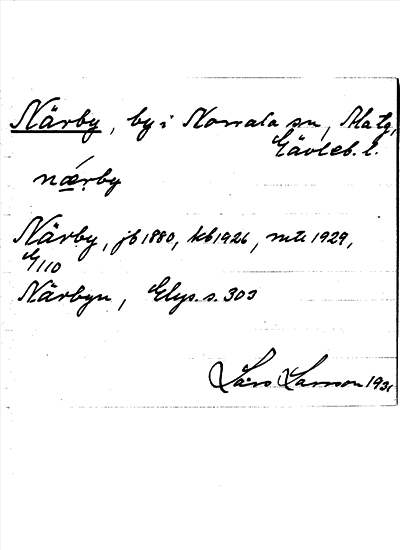 Närby, by i Norrala sn,
Gävleb. l.
nærby
Närby, jb 1880, kb 1926, mtl 1929,
G 110
Närbyn, Elgs. s. 303
Lars Larsson 193